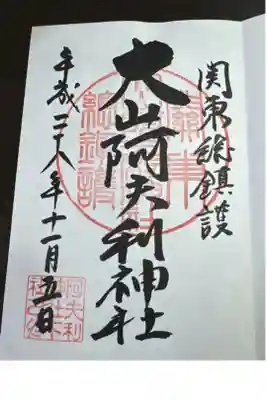 関東総鎮護
大山阿夫利神社
平成二十八年十一月五日
阿夫利
神社下
社之印